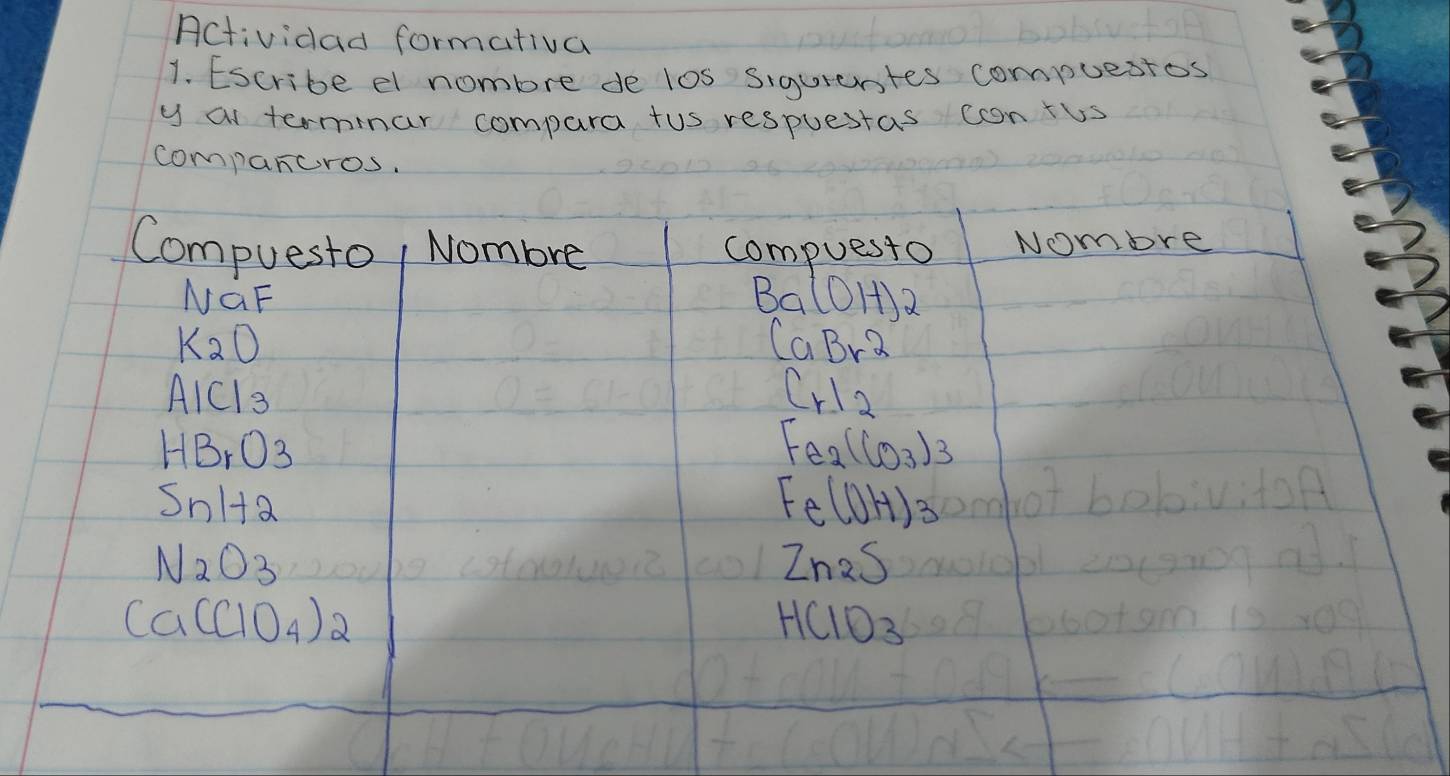 Actividad formativa
1. Escribe el nombre de los siguientes compuestos
y al terminar compara tus respuestas con tus
compañeros.
Compuesto Nombre compuesto Nombre
NaF Ba(OH)2
K2O CaBr2
AlCl3 CrI2
HBrO3 Fe2(CO3)3
SnH2 Fe(OH)3
N2O3 Zn2S
Ca(ClO4)2 HClO3